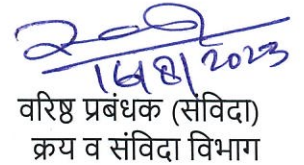 2023
वरिष्ठ प्रबंधक (संविदा)
क्रय व संविदा विभाग